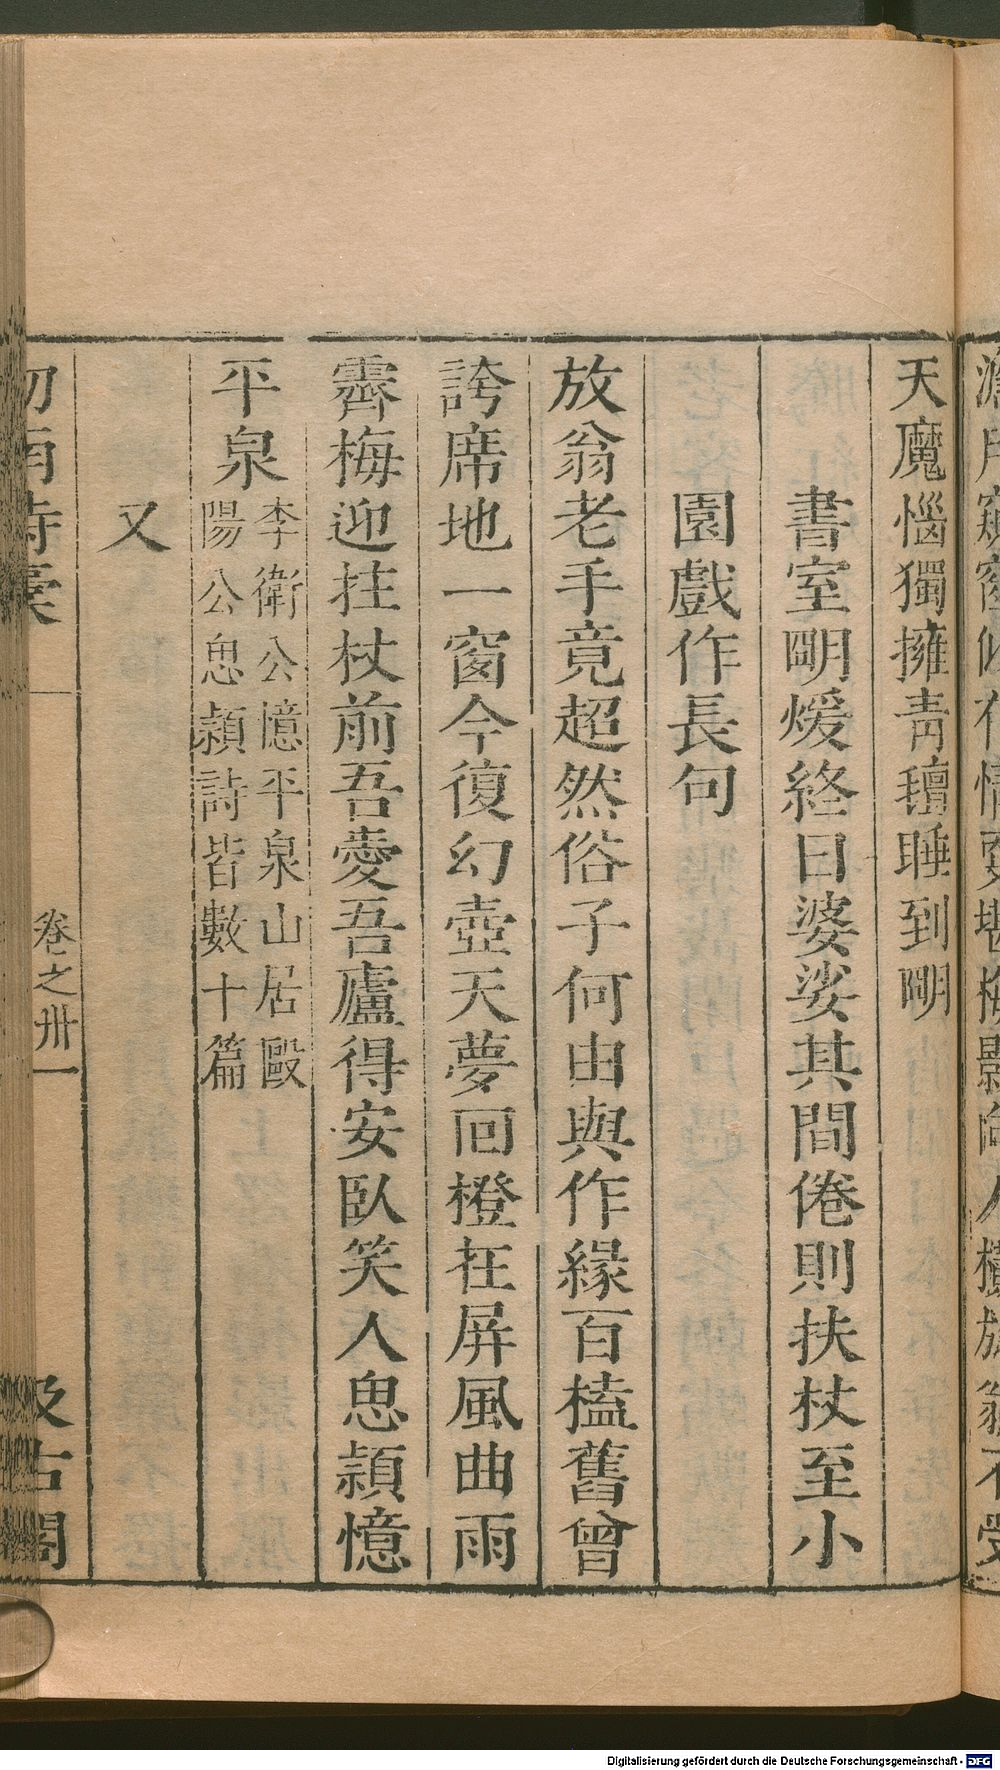 天魔惱獨擁靑氊睡到朙
書室朙煖終日婆娑其間倦則扶杖至小
園戲作長句
放翁老手竟超然俗子何由與作緣百榼舊曾
誇席地一窗今復幻壺天夢回橙在屏風曲雨
霽梅迎拄杖前吾愛吾廬得安臥笑人思潁憶
平泉
李衛公憶平泉山居歐
陽公思潁詩皆數十篇
又
卷之卅一
汲古閣
Digitalisierung gefördert durch die Deutsche Forschungsgemeinschaft - DFG